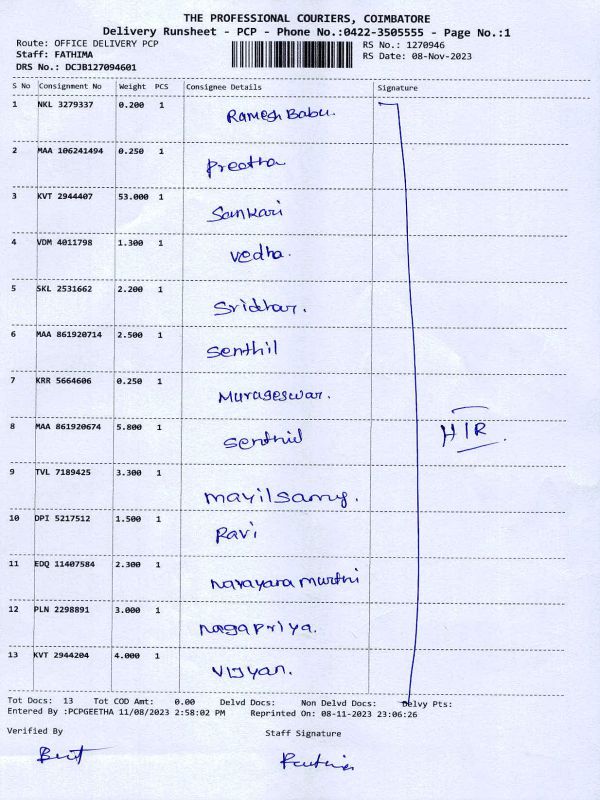 THE PROFESSIONAL COURIERS, COIMBATORE
Delivery Runsheet - PCP - Phone No.:0422-3505555 - Page No.:1
Route: OFFICE DELIVERY PCP RS No.: 1270946
Staff: FATHIMA RS Date: 08-Nov-2023
DRS No.: DCJB127094601
S No Consignment No Weight PCS Consignee Details Signature
1 NKL 3279337 0.200 1 Ramesh Babu.
2 MAA 106241494 0.250 1 Preetha
3 KVT 2944407 53.000 1 Sankari
4 VDM 4011798 1.300 1 Vedha.
5 SKL 2531662 2.200 1 Sridhar.
6 MAA 861920714 2.500 1 Senthil
7 KRR 5664606 0.250 1 Murageswar.
8 MAA 861920674 5.800 1 Senthil
H/R.
9 TVL 7189425 3.300 1 mayilsamy.
10 DPI 5217512 1.500 1 Ravi
11 EDQ 11407584 2.300 1 Narayana murthi
12 PLN 2298891 3.000 1 Nagapriya.
13 KVT 2944204 4.000 1 Vijyan.
Tot Docs: 13 Tot COD Amt: 0.00 Delvd Docs: Non Delvd Docs: Delvy Pts:
Entered By :PCPGEETHA 11/08/2023 2:58:02 PM Reprinted On: 08-11-2023 23:06:26
Verified By Staff Signature